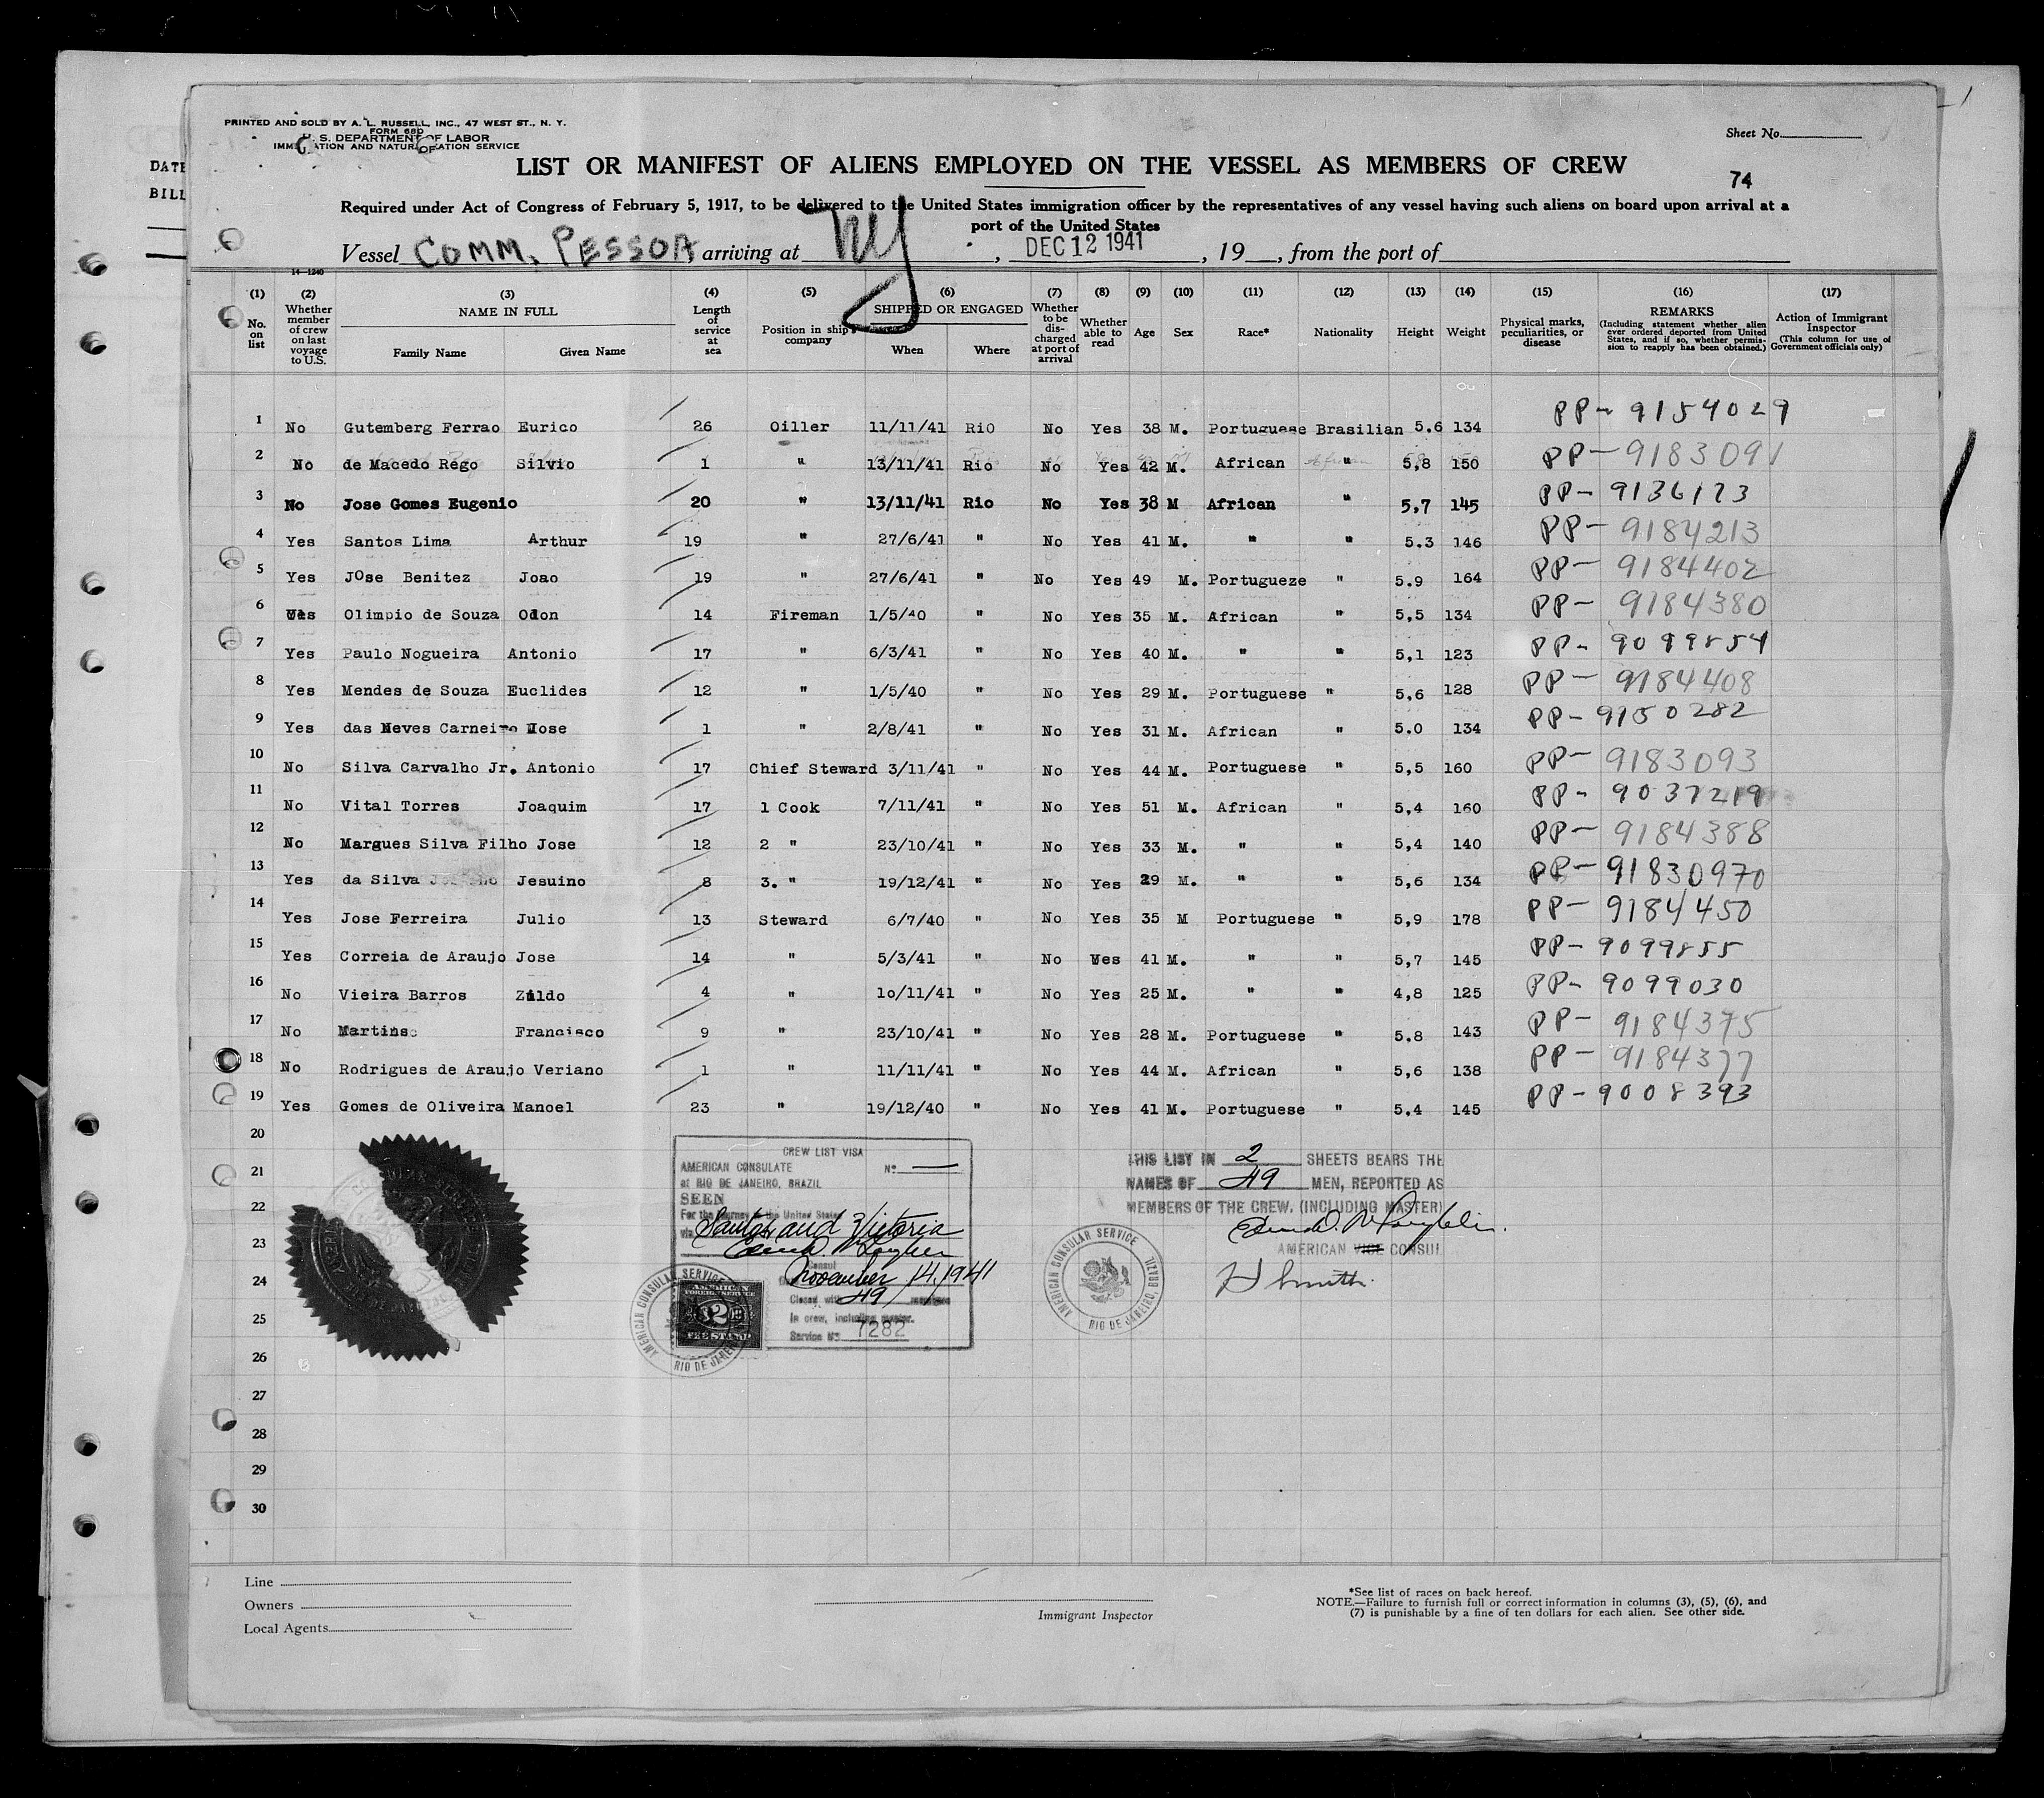 DATE
BILL
PRINTED AND SOLD BY A. L. RUSSELL, INC., 47 WEST ST., N. Y.
FORM 680
U. S. DEPARTMENT OF LABOR
Sheet No.
LIST OR MANIFEST OF ALIENS EMPLOYED ON THE VESSEL AS MEMBERS OF CREW
74
Required under Act of Congress of February 5, 1917, to be delivered to the United States immigration officer by the representatives of any vessel having such aliens on board upon arrival at a
port of the United States
Vessel COMM. PESSOA arriving at NY, DEC 12 1941, 19__, from the port of
14-1240
(1) (2) (3) (4) (5) (6) (7) (8) (9) (10) (11) (12) (13) (14) (15) (16) (17)
No. on list
Whether member of crew on last voyage to U.S.
NAME IN FULL
Family Name Given Name
Length of service at sea
Position in ship's company
SHIPPED OR ENGAGED
When Where
Whether to be discharged at port of arrival
Whether able to read
Age Sex Race* Nationality Height Weight
Physical marks, peculiarities, or disease
REMARKS
(Including statement whether alien ever ordered deported from United States, and if so, whether permission to reapply has been obtained.)
Action of Immigrant Inspector
(This column for use of Government officials only)
1 No Gutemberg Ferrao Eurico 26 Oiller 11/11/41 Rio No Yes 38 M. Portuguese Brasilian 5.6 134 PP- 9154029
2 No de Macedo Rego Silvio 1 " 13/11/41 Rio No Yes 42 M. African " 5,8 150 PP- 9183091
3 No Jose Gomes Eugenio 20 " 13/11/41 Rio No Yes 38 M African " 5,7 145 PP- 9136173
4 Yes Santos Lima Arthur 19 " 27/6/41 " No Yes 41 M. " " 5.3 146 PP- 9184213
5 Yes JOse Benitez Joao 19 " 27/6/41 " No Yes 49 M. Portugueze " 5.9 164 PP- 9184402
6 Yes Olimpio de Souza Odon 14 Fireman 1/5/40 " No Yes 35 M. African " 5,5 134 PP- 9184380
7 Yes Paulo Nogueira Antonio 17 " 6/3/41 " No Yes 40 M. " " 5,1 123 PP- 9099854
8 Yes Mendes de Souza Euclides 12 " 1/5/40 " No Yes 29 M. Portuguese " 5,6 128 PP- 9184408
9 Yes das Neves Carneiro Jose 1 " 2/8/41 " No Yes 31 M. African " 5.0 134 PP- 9150282
10 No Silva Carvalho Jr. Antonio 17 Chief Steward 3/11/41 " No Yes 44 M. Portuguese " 5,5 160 PP- 9183093
11 No Vital Torres Joaquim 17 1 Cook 7/11/41 " No Yes 51 M. African " 5,4 160 PP- 9037219
12 No Margues Silva Filho Jose 12 2 " 23/10/41 " No Yes 33 M. " " 5,4 140 PP- 9184388
13 Yes da Silva Jesuino 8 3. " 19/12/41 " No Yes 29 M. " " 5,6 134 PP- 91830970
14 Yes Jose Ferreira Julio 13 Steward 6/7/40 " No Yes 35 M Portuguese " 5,9 178 PP- 9184450
15 Yes Correia de Araujo Jose 14 " 5/3/41 " No Yes 41 M. " " 5,7 145 PP- 9099855
16 No Vieira Barros Zildo 4 " 10/11/41 " No Yes 25 M. " " 4,8 125 PP- 9099030
17 No Martins Francisco 9 " 23/10/41 " No Yes 28 M. Portuguese " 5.8 143 PP- 9184375
18 No Rodrigues de Araujo Veriano 1 " 11/11/41 " No Yes 44 M. African " 5,6 138 PP- 9184377
19 Yes Gomes de Oliveira Manoel 23 " 19/12/40 " No Yes 41 M. Portuguese " 5.4 145 PP- 9008393
20
21
22
23
24
25
26
27
28
29
30
CREW LIST VISA
AMERICAN CONSULATE No. —
at RIO DE JANEIRO, BRAZIL
SEEN
For the journey to the United States
via Santos and Victoria
Consul
November 14, 1941
Closed with 49
In crew, including master.
Service No. 7282
AMERICAN CONSULAR SERVICE
RIO DE JANEIRO
AMERICAN
FOREIGN SERVICE
$2
FEE STAMP
THIS LIST IN 2 SHEETS BEARS THE
NAMES OF 49 MEN, REPORTED AS
MEMBERS OF THE CREW. (INCLUDING MASTER)
AMERICAN VICE CONSUL
H Smith.
AMERICAN CONSULAR SERVICE
RIO DE JANEIRO, BRAZIL
Line
Owners
Local Agents
Immigrant Inspector
*See list of races on back hereof.
NOTE.—Failure to furnish full or correct information in columns (3), (5), (6), and
(7) is punishable by a fine of ten dollars for each alien. See other side.